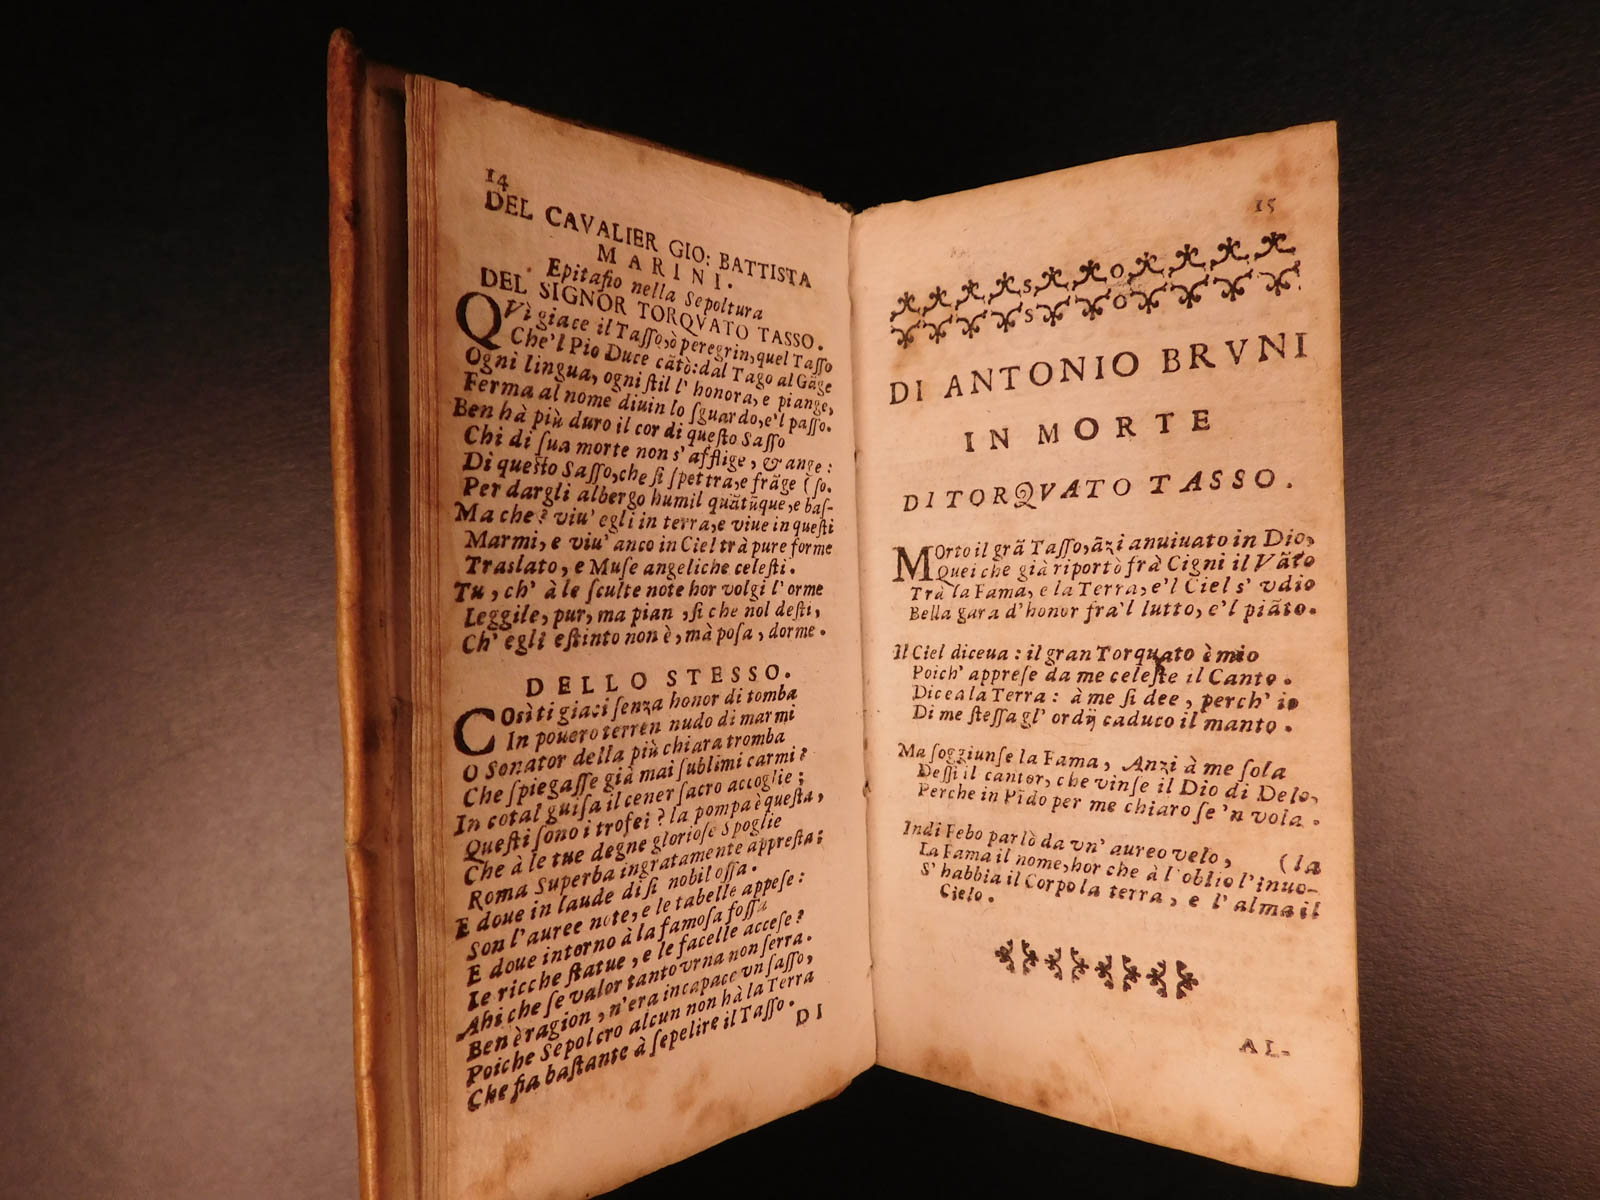 14
DEL CAVALIER GIO: BATTISTA
MARINI.
Epitafio nella Sepoltura
DEL SIGNOR TORQVATO TASSO.
QVì giace il Taſſo, ò peregrin, quel Taſſo
Che'l Pio Duce cãtò: dal Tago al Gãge
Ogni lingua, ogni ſtil l'honora, e piange,
Ferma al nome diuin lo ſguardo, e'l paſſo.
Ben hà più duro il cor di queſto Saſſo
Chi di ſua morte non s'afflige, & ange:
Di queſto Saſſo, che ſi ſpettra, e frãge (ſo.
Per dargli albergo humil quãtũque, e baſ-
Ma che? viu' egli in terra, e viue in queſti
Marmi, e viu' anco in Ciel trà pure forme
Traslato, e Muſe angeliche celeſti.
Tu, ch' à le ſculte note hor volgi l'orme
Leggile, pur, ma pian, ſi che nol deſti,
Ch' egli eſtinto non è, mà poſa, dorme.
DELLO STESSO.
COsì ti giaci ſenza honor di tomba
In pouero terren nudo di marmi
O Sonator della più chiara tromba
Che ſpiegaſſe già mai ſublimi carmi?
In cotal guiſa il cener ſacro accoglie;
Queſti ſono i trofei? la pompa è queſta,
Che à le tue degne glorioſe Spoglie
Roma Superba ingratamente appreſta;
E doue in laude di ſi nobil oſſa.
Son l'auree note, e le tabelle appeſe:
E doue intorno à la famoſa foſſa
Le ricche ſtatue, e le facelle acceſe?
Ahi che ſe valor tanto vrna non ſerra.
Ben è ragion, n'era incapace vn ſaſſo,
Poiche Sepolcro alcun non hà la Terra
Che ſia baſtante à ſepelire il Taſſo.
DI
15
S O
S O
DI ANTONIO BRVNI
IN MORTE
DI TORQVATO TASSO.
MOrto il grã Taſſo, ãzi anuiuato in Dio,
Quei che già riportò frà Cigni il Vãto
Trà la Fama, e la Terra, e'l Ciel s' vdio
Bella gara d'honor fra'l lutto, e'l piãto.
Il Ciel diceua: il gran Torquato è mio
Poich' appreſe da me celeſte il Canto.
Dicea la Terra: à me ſi dee, perch' io
Di me ſteſſa gl' ordij caduco il manto.
Ma ſoggiunſe la Fama, Anzi à me ſola
Deſſi il cantor, che vinſe il Dio di Delo,
Perche in Pĩdo per me chiaro ſe 'n vola.
Indi Febo parlò da vn' aureo velo, (la
La Fama il nome, hor che à l'oblio l'inuo-
S' habbia il Corpo la terra, e l'alma il
Cielo.
AL-